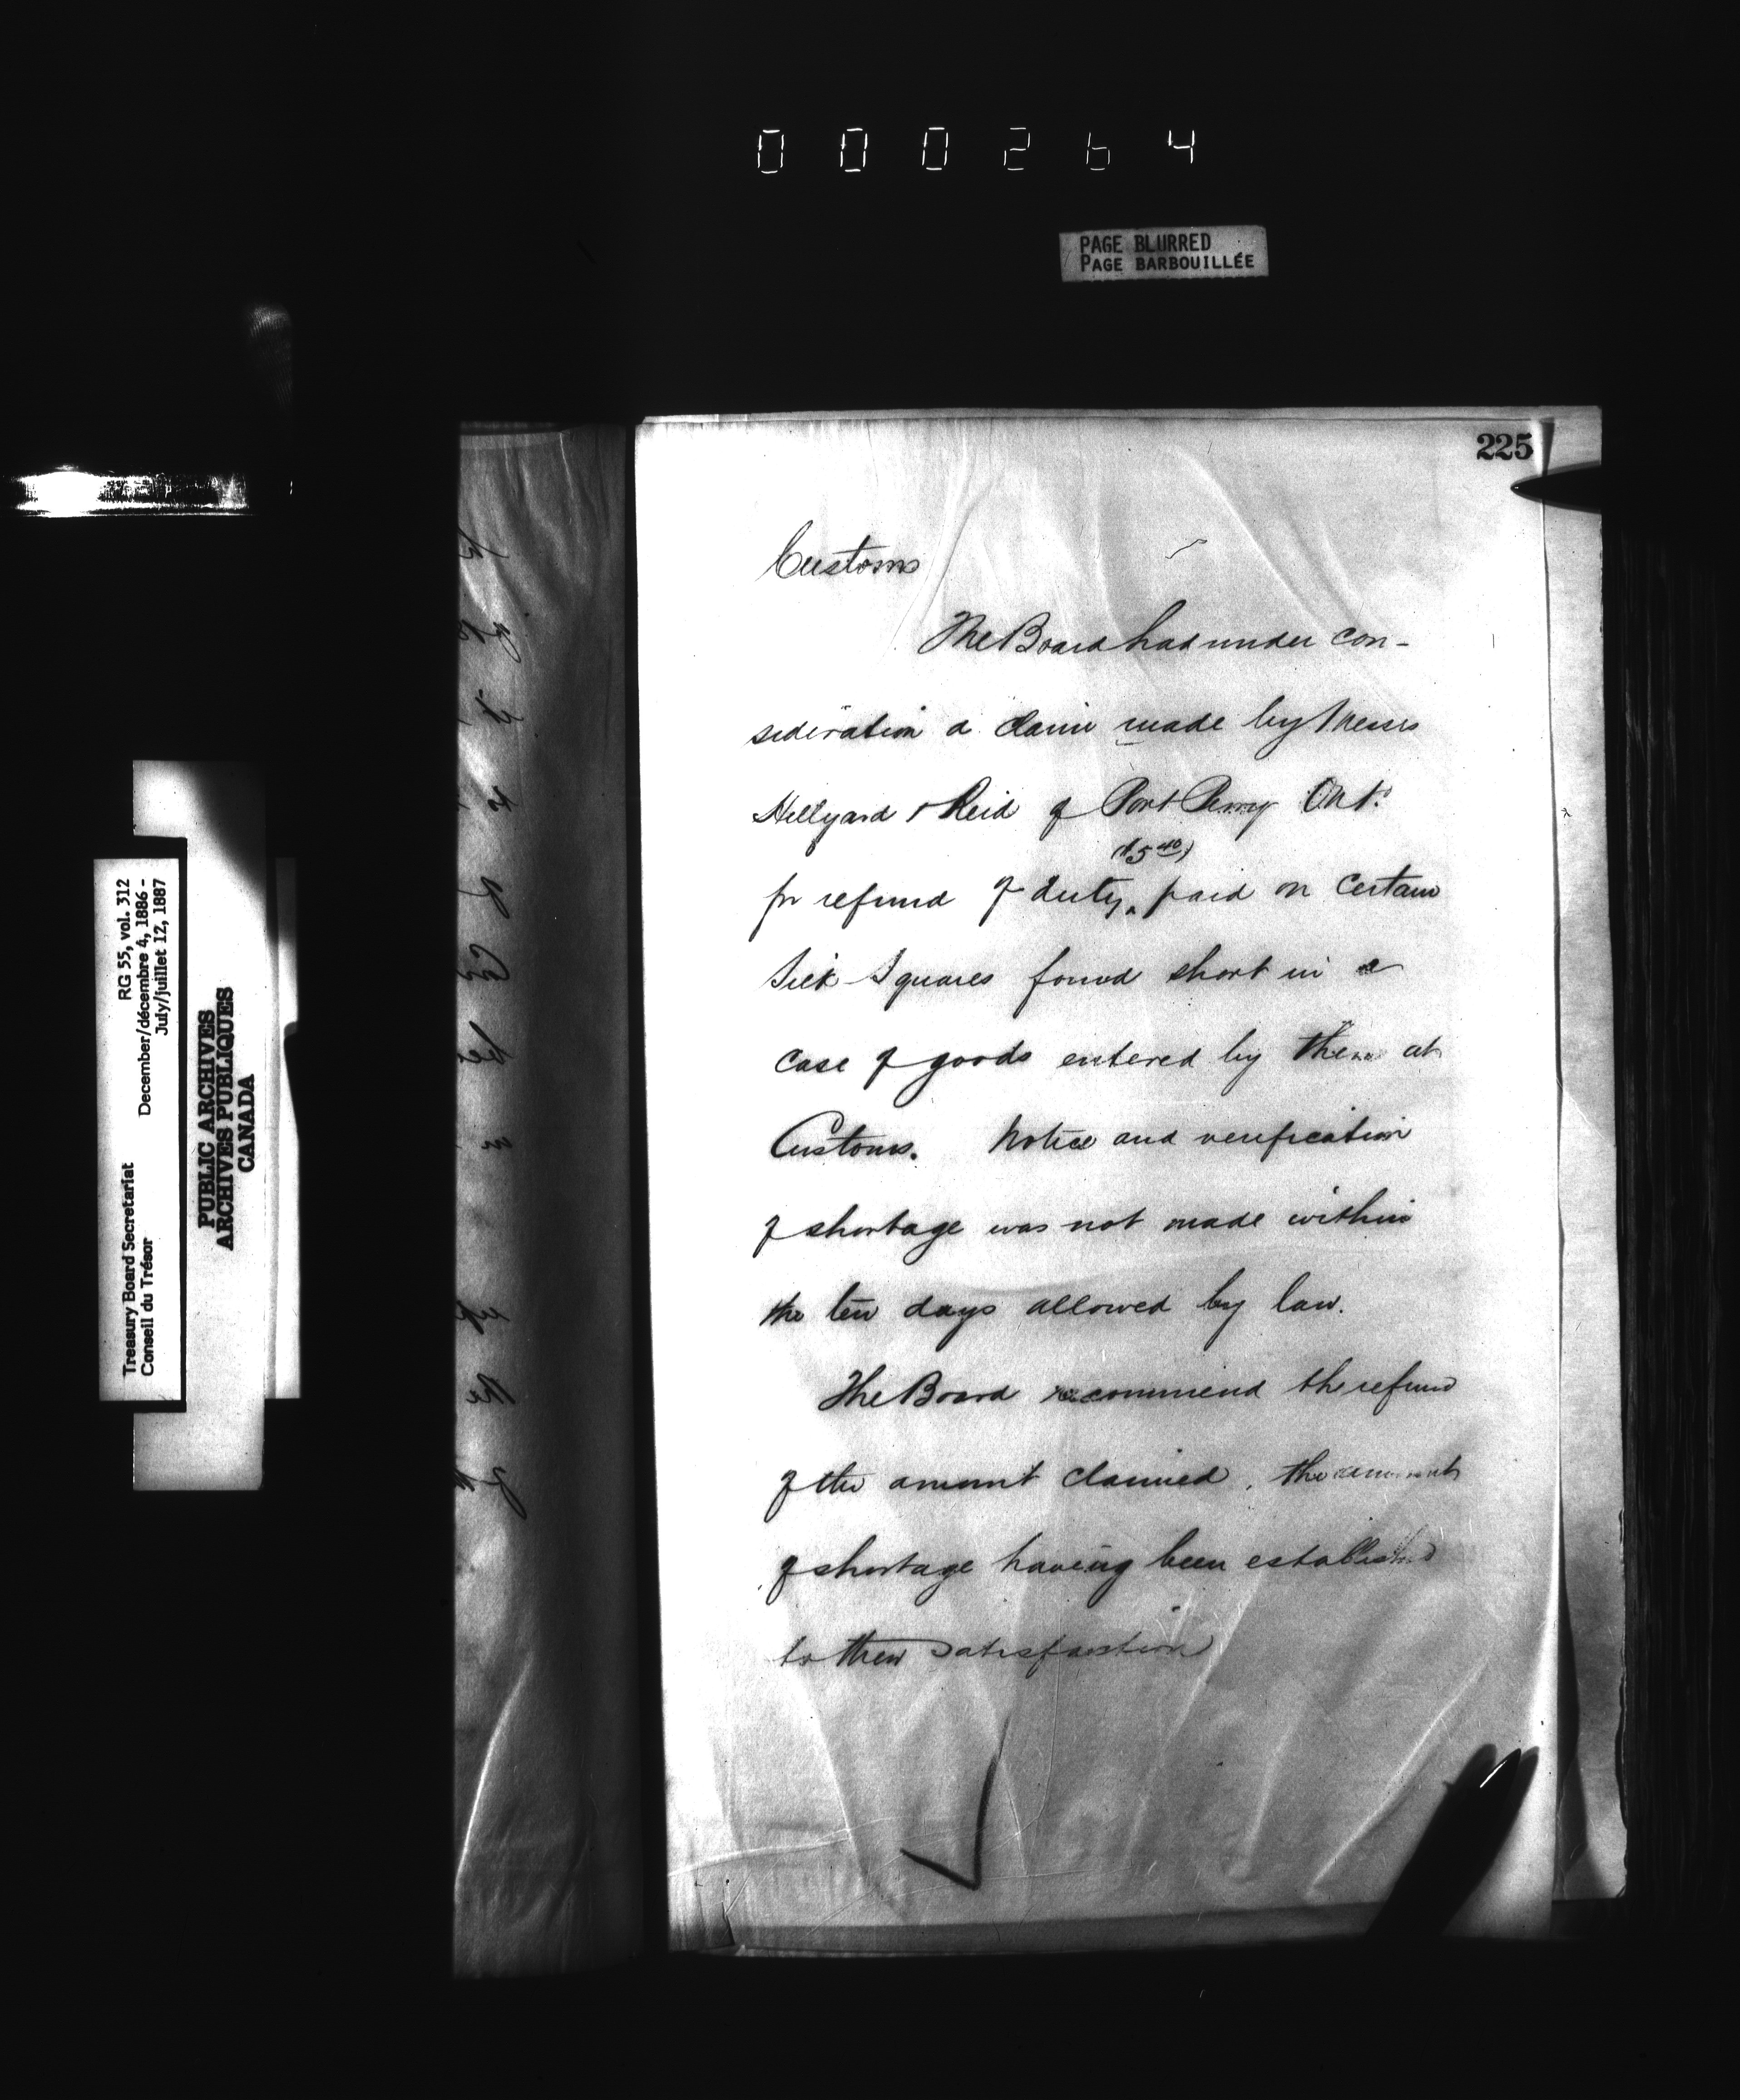 000264
PAGE BLURRED
PAGE BARBOUILLÉE
225
Customs
The Board had under con-
sideration a claim made by Messrs
Hillyard & Reid of Port Perry Ont.
($5 40)
for refund of duty ‸ paid on certain
Silk Squares found short in a
case of goods entered by them at
Customs. Notice and verification
of shortage was not made within
the ten days allowed by law.
The Board recommend the refund
of the amount claimed, the amount
of shortage having been established
to their satisfaction
Treasury Board Secretariat RG 55, vol. 312
Conseil du Trésor December/décembre 4, 1886 -
July/juillet 12, 1887
PUBLIC ARCHIVES
ARCHIVES PUBLIQUES
CANADA